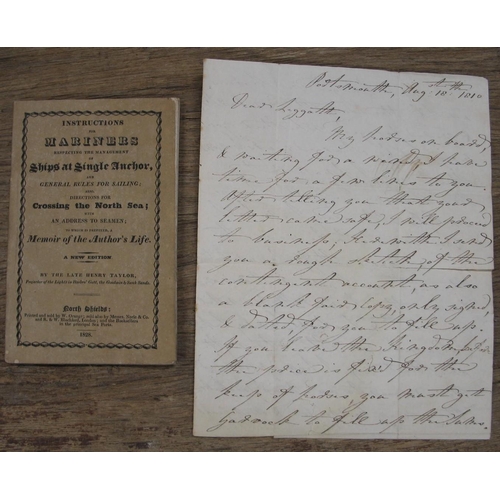 INSTRUCTIONS
FOR
MARINERS
RESPECTING THE MANAGEMENT
OF
Ships at Single Anchor,
AND
GENERAL RULES FOR SAILING;
ALSO
DIRECTIONS FOR
Crossing the North Sea;
WITH
AN ADDRESS TO SEAMEN;
TO WHICH IS PREFIXED, A
Memoir of the Author's Life.
A NEW EDITION
BY THE LATE HENRY TAYLOR,
North Shields:
Printed and sold by
London; and the Booksellers
in the principal Sea Ports.
Portsmouth, Augt 18th 1810
Dear
My horses on board,
& waiting for a wind, I have
time for a few lines to you
After telling you that your
letter came safe, I will proceed
to business, Herewith I send
you a rough sketch of the
contingent account, as also
a blank fair copy, only signed,
& dated, for you to fill up.
If you leave the Kingdom before
the price is fixed for the
keep of horses, you must get
to fill up the same.